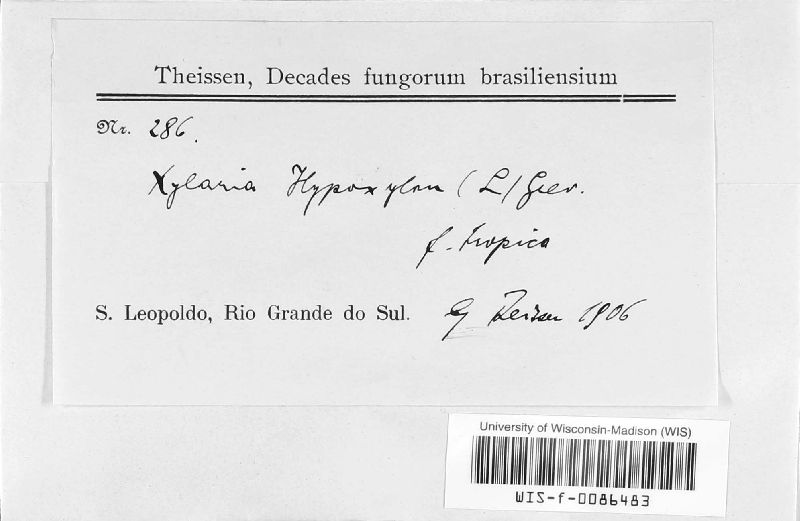 Theissen, Decades fungorum brasiliensium
Nr. 286.
Xylaria Hypoxylon (L) Grev.
f. tropica
S. Leopoldo, Rio Grande do Sul. G Theissen 1906
University of Wisconsin-Madison (WIS)
WIS-f-0086483